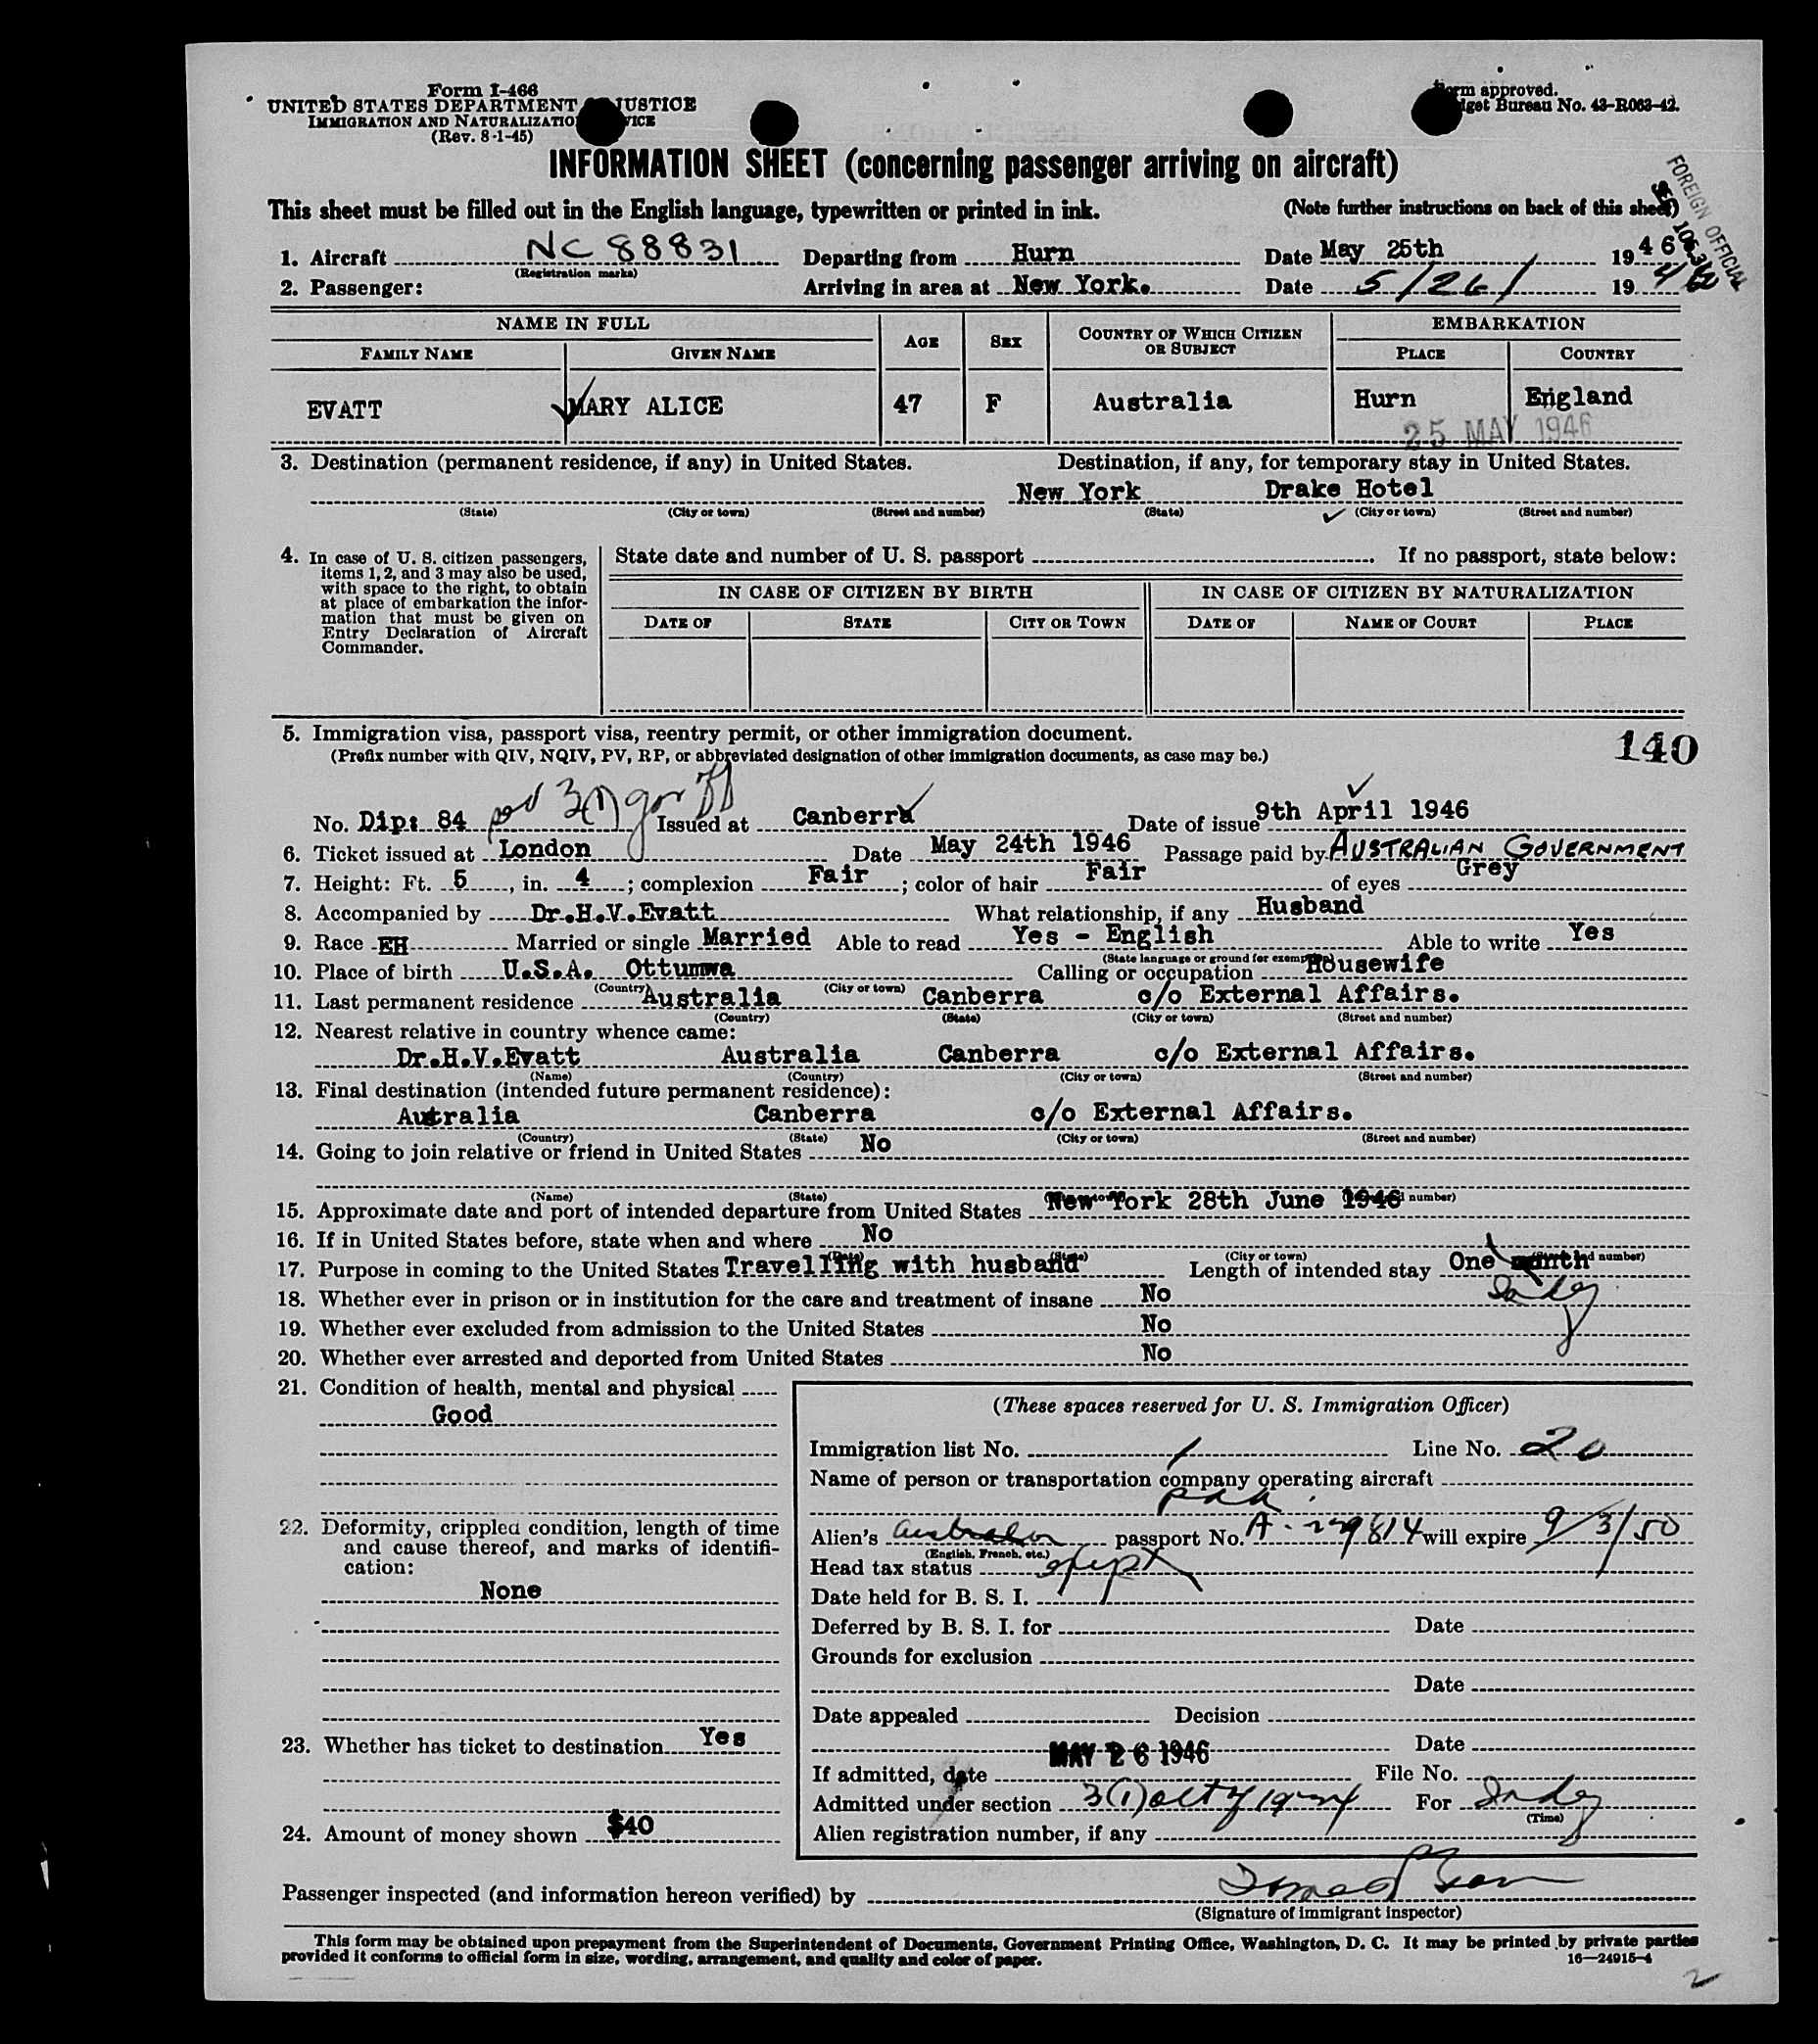 Form I-466
UNITED STATES DEPARTMENT JUSTICE
IMMIGRATION AND NATURALIZATIO VICE
(Rev. 8-1-45)
rm approved.
dget Bureau No. 43-R063-42.
INFORMATION SHEET (concerning passenger arriving on aircraft)
This sheet must be filled out in the English language, typewritten or printed in ink. (Note further instructions on back of this sheet)
FOREIGN OFFICIAL
1. Aircraft NC 88831 Departing from Hurn Date May 25th 1946
(Registration marks)
2. Passenger: Arriving in area at New York. Date 5/26/ 19
NAME IN FULL AGE SEX COUNTRY OF WHICH CITIZEN OR SUBJECT EMBARKATION
FAMILY NAME GIVEN NAME PLACE COUNTRY
EVATT MARY ALICE 47 F Australia Hurn England
25 MAY 1946
3. Destination (permanent residence, if any) in United States. Destination, if any, for temporary stay in United States.
New York Drake Hotel
(State) (City or town) (Street and number) (State) (City or town) (Street and number)
4. In case of U. S. citizen passengers, items 1, 2, and 3 may also be used, with space to the right, to obtain at place of embarkation the information that must be given on Entry Declaration of Aircraft Commander.
State date and number of U. S. passport If no passport, state below:
IN CASE OF CITIZEN BY BIRTH IN CASE OF CITIZEN BY NATURALIZATION
DATE OF STATE CITY OR TOWN DATE OF NAME OF COURT PLACE
5. Immigration visa, passport visa, reentry permit, or other immigration document.
(Prefix number with QIV, NQIV, PV, RP, or abbreviated designation of other immigration documents, as case may be.)
140
No. Dip: 84 Issued at Canberra Date of issue 9th April 1946
6. Ticket issued at London Date May 24th 1946 Passage paid by AUSTRALIAN GOVERNMENT
7. Height: Ft. 5, in. 4; complexion Fair; color of hair Fair of eyes Grey
8. Accompanied by Dr.H.V.Evatt What relationship, if any Husband
9. Race EH Married or single Married Able to read Yes - English Able to write Yes
(State language or ground for exemption)
10. Place of birth U.S.A. Ottumwa Calling or occupation Housewife
(Country) (City or town)
11. Last permanent residence Australia Canberra c/o External Affairs.
(Country) (State) (City or town) (Street and number)
12. Nearest relative in country whence came:
Dr.H.V.Evatt Australia Canberra c/o External Affairs.
(Name) (Country) (City or town) (Street and number)
13. Final destination (intended future permanent residence):
Autralia Canberra c/o External Affairs.
(Country) (State) (City or town) (Street and number)
14. Going to join relative or friend in United States No
(Name) (State) number)
15. Approximate date and port of intended departure from United States New York 28th June 1946
16. If in United States before, state when and where No
(Date) (State) (City or town) number)
17. Purpose in coming to the United States Travelling with husband Length of intended stay One month
18. Whether ever in prison or in institution for the care and treatment of insane No
19. Whether ever excluded from admission to the United States No
20. Whether ever arrested and deported from United States No
21. Condition of health, mental and physical
Good
22. Deformity, crippled condition, length of time and cause thereof, and marks of identification:
None
23. Whether has ticket to destination Yes
24. Amount of money shown $40
(These spaces reserved for U. S. Immigration Officer)
Immigration list No. 1 Line No. 20
Name of person or transportation company operating aircraft
PAA
Alien's Australian passport No. A. will expire 9/3/50
(English, French, etc.)
Head tax status
Date held for B. S. I.
Deferred by B. S. I. for Date
Grounds for exclusion
Date
Date appealed Decision
Date
MAY 26 1946
If admitted, date File No.
Admitted under section 3(1) act of 1924 For
(Time)
Alien registration number, if any
Passenger inspected (and information hereon verified) by
(Signature of immigrant inspector)
This form may be obtained upon prepayment from the Superintendent of Documents, Government Printing Office, Washington, D. C. It may be printed by private parties
provided it conforms to official form in size, wording, arrangement, and quality and color of paper. 16—24915-4
2